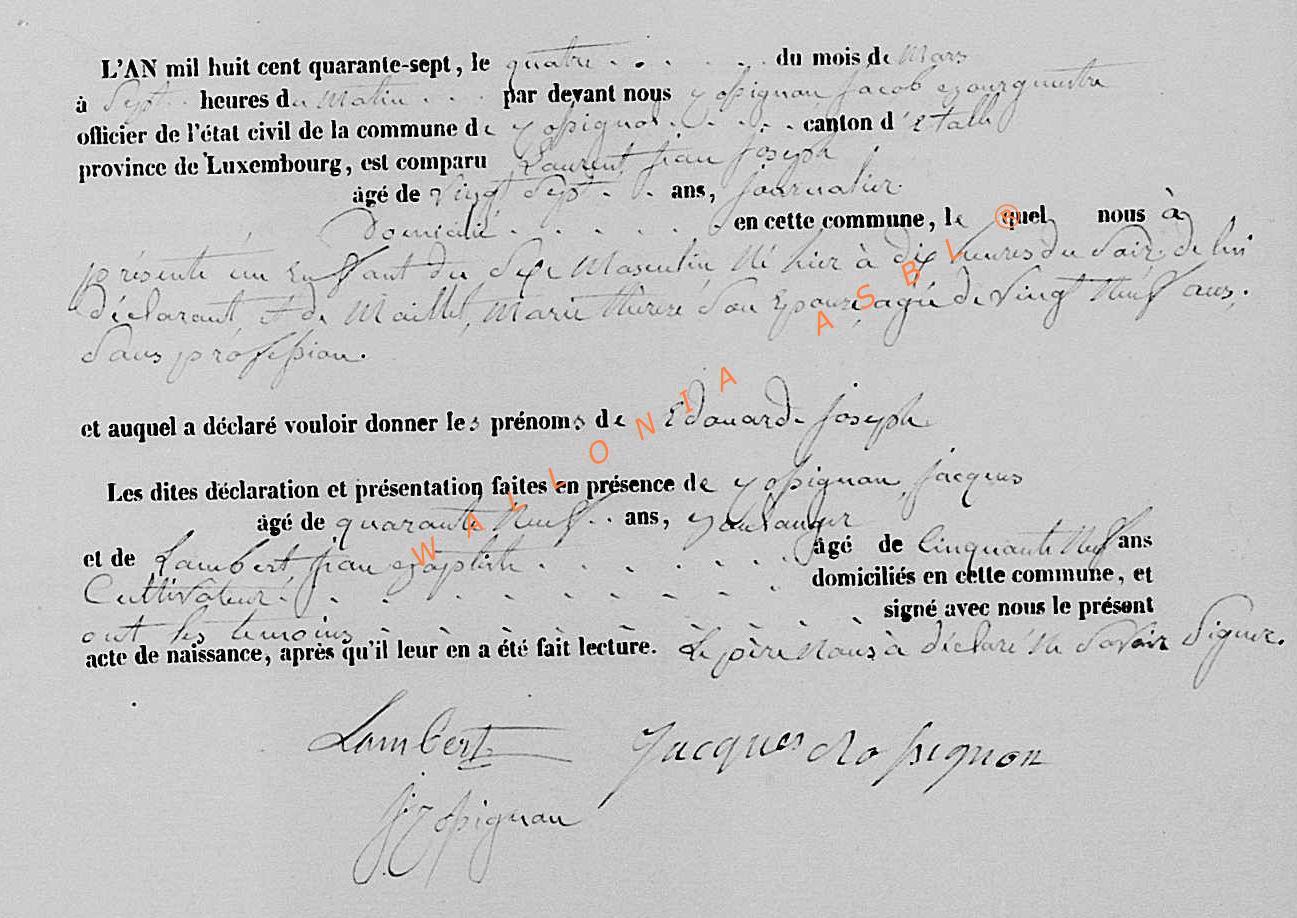 L'AN mil huit cent quarante-sept, le quatre . . . . . du mois de Mars
à Sept heures du Matin . . . par devant nous Rossignon Jacob Bourgmestre
officier de l'état civil de la commune de Rossignol . . . . . canton d'Etalle
province de Luxembourg, est comparu Laurent, Jean Joseph
âgé de vingt Sept . . ans, journalier.
Domicilié . . . . . . en cette commune, lequel nous à
présenté un Enfant du Sexe Masculin Né hier à dix heures du Soir de lui
déclarant, et de Maillet, Marie thérèse Son Epouse, agée de Vingt Neuf ans,
Sans profession.
et auquel a déclaré vouloir donner les prénoms de Edouard Joseph
Les dites déclaration et présentation faites en présence de Rossignon, Jacques
âgé de quarante Neuf . . ans, Boulanger
et de Lambert Jean Baptiste . . . . . . âgé de Cinquante Neuf ans
Cultivateur . . . . . . . . . domiciliés en cette commune, et
ont les temoins . . . . . . . . signé avec nous le présent
acte de naissance, après qu'il leur en a été fait lecture. Le père Nous à déclaré Ne Savoir Signer.
Lambert Jacques Rossignon
J Rossignon
WALLONIA ASBL ®